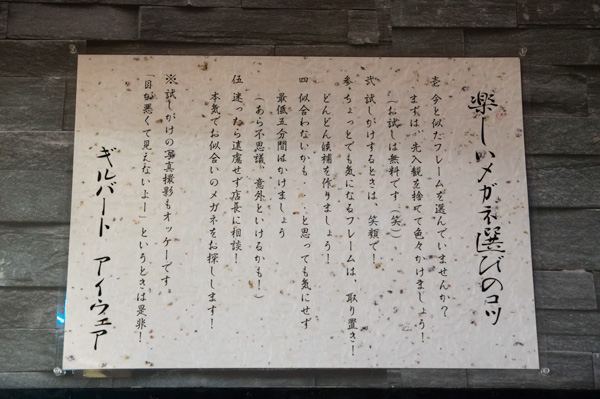 楽しいメガネ選びのコツ
壱 今と似たフレームを選んでいませんか?
まずは、先入観を捨てて色々かけましょう!
(お試しは無料です(笑)
弐 試しがけするときは、笑顔で!
参 ちょっとでも気になるフレームは、取り置き!
どんどん候補を作りましょう!
四 似合わないかも・・・と思っても気にせず
最低五分間はかけましょう
(あら不思議、意外といけるかも!)
伍 迷ったら遠慮せず店長に相談!
本気でお似合いのメガネをお探しします!
※ 試しがけの写真撮影もオッケーです。
「目が悪くて見えないよー」というときは是非!
ギルバート アイウェア